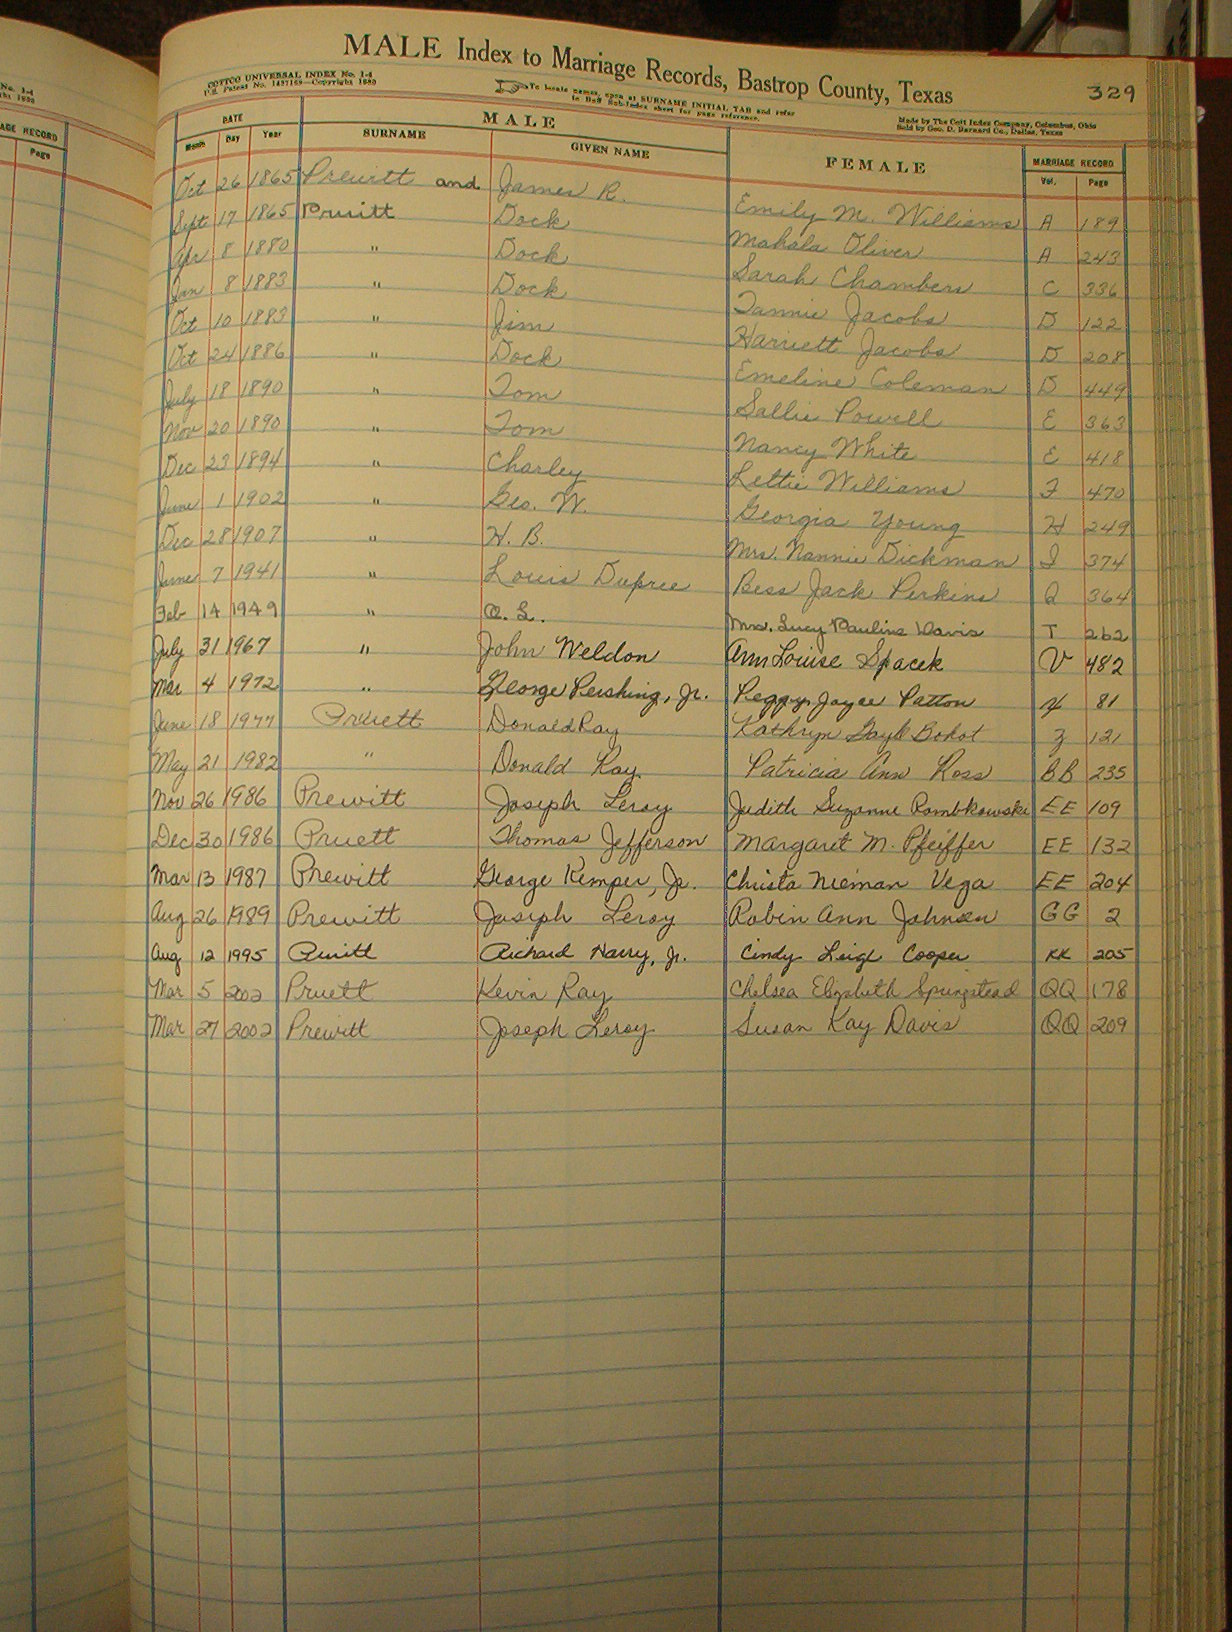 No. 1-4
ght 1880
AGE RECORD
Page
MALE Index to Marriage Records, Bastrop County, Texas
329
COTTCO UNIVERSAL INDEX No. 1-4
U.S. Patent No. 1427169—Copyright 1880
To locate names, open at SURNAME INITIAL TAB and refer
to Buff Sub-Index sheet for page reference.
Made by The Cott Index Company, Columbus, Ohio
Sold by Geo. D. Barnard Co., Dallas, Texas
DATE MALE FEMALE MARRIAGE RECORD
Month Day Year SURNAME GIVEN NAME Vol. Page
Oct 26 1865 Prewitt and James R. Emily M. Williams A 189
Sept 17 1865 Pruitt Dock Mahala Oliver A 243
Apr 8 1880 " Dock Sarah Chambers C 336
Jan 8 1883 " Dock Fannie Jacobs D 122
Oct 10 1883 " Jim Harriett Jacobs D 208
Oct 24 1886 " Dock Emeline Coleman D 449
July 18 1890 " Tom Sallie Powell E 363
Nov 20 1890 " Tom Nancy White E 418
Dec 23 1894 " Charley Lettie Williams F 470
June 1 1902 " Geo. W. Georgia Young H 249
Dec 28 1907 " H. B. Mrs. Nannie Dickman I 374
June 7 1941 " Louis Dupree Bess Jack Perkins Q 364
Feb 14 1949 " O. L. Mrs. Lucy Pauline Davis T 262
July 31 1967 " John Weldon Ann Louise Spacek V 482
Mar 4 1972 " George Pershing, Jr. Peggy Joyce Patton 81
June 18 1977 Pruett Donald Ray Kathryn Gayle 3 121
May 21 1982 " Donald Ray Patricia Ann Ross BB 235
Nov 26 1986 Prewitt Joseph Leroy Judith Suzanne Rombkowski EE 109
Dec 30 1986 Pruett Thomas Jefferson Margaret M. Pfeiffer EE 132
Mar 13 1987 Prewitt George Kemper, Jr. Christa Nieman Vega EE 204
Aug 26 1989 Prewitt Joseph Leroy Robin Ann Johnson GG 2
Aug 12 1995 Pruitt Richard Harry, Jr. Cindy Leigh Cooper KK 205
Mar 5 2002 Pruett Kevin Ray Chelsea Elizabeth Springstead QQ 178
Mar 27 2002 Prewitt Joseph Leroy Susan Kay Davis QQ 209